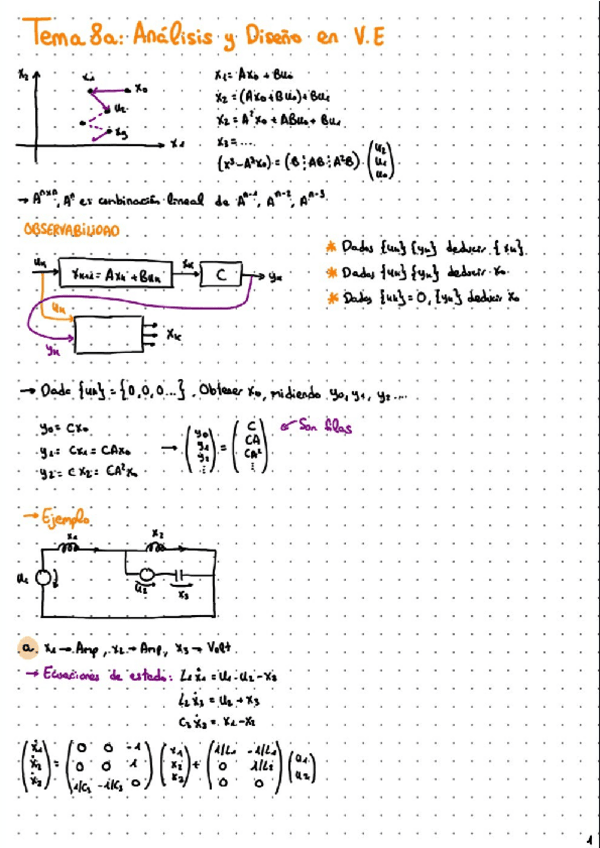 Tema 8a: Análisis y Diseño en V.E
x2
x1
x0
u2
x3
x1
x1 = Ax0 + Bu0
x2 = (Ax0+Bu0)+Bu1
x2 = A²x0 + ABu0 + Bu1
x3 = ...
(x³-A³x0) = (B ⋮ AB ⋮ A²B) · (u2 u1 u0)
→ Aⁿˣⁿ, Aⁿ es combinación lineal de Aⁿ⁻¹, Aⁿ⁻², Aⁿ⁻³
OBSERVABILIDAD
uk → xk+1 = Axk + Buk → xk → C → yk
uk
yk
xk
* Dados {uk} {yk} deducir {xk}
* Dados {uk} {yk} deducir x0
* Dados {uk}=0, {yk} deducir x0
→ Dado {uk} = {0,0,0...}. Obtener x0, midiendo y0, y1, y2...
y0 = Cx0
y1 = Cx1 = CAx0
y2 = Cx2 = CA²x0
→ (y0 y1 y2 ⋮) = (C CA CA² ⋮) Son filas
→ Ejemplo
x1
x2
u1
u2
x3
a. x1 → Amp, x2 → Amp, x3 → Volt
→ Ecuaciones de estado: L1ẋ1 = u1 - u2 - x3
L2ẋ3 = u2 + x3
C3ẋ3 = x1 - x2
(ẋ1 ẋ2 ẋ3) = (0 0 -1 0 0 1 1/C3 -1/C3 0) (x1 x2 x3) + (1/L1 -1/L1 0 1/L2 0 0) (u1 u2)
1